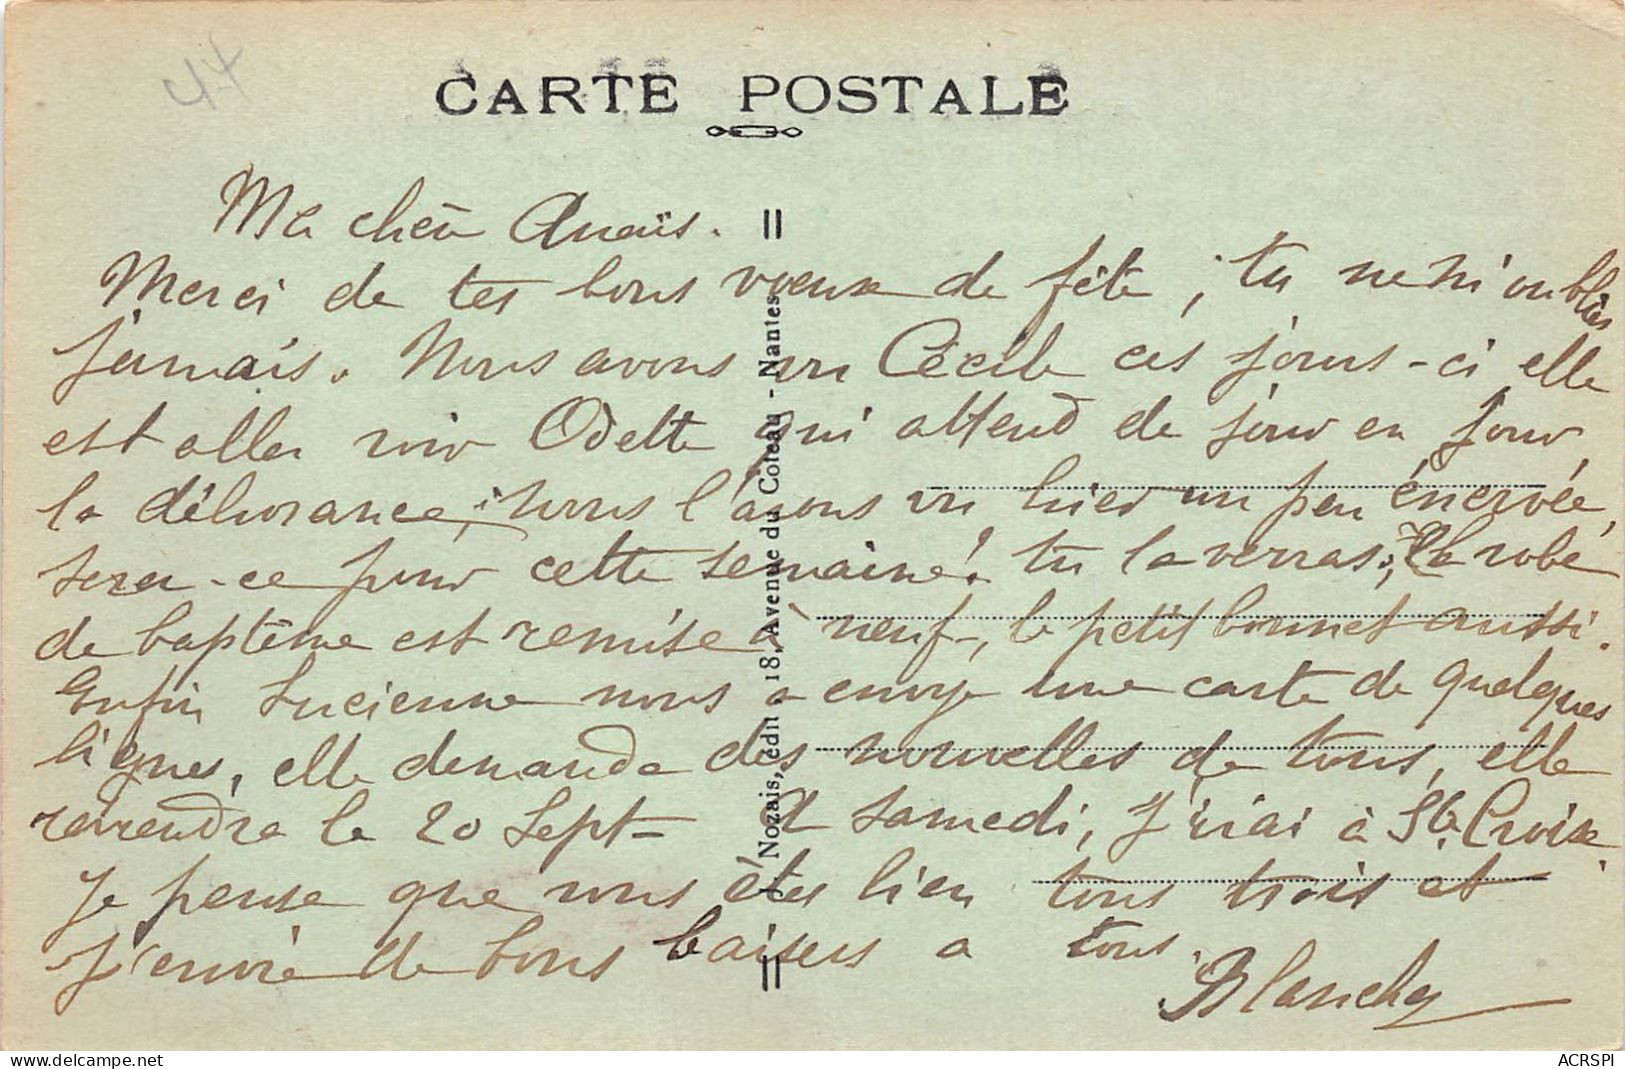 44
CARTE POSTALE
Ma chère Anaïs.
Merci de tes bons voeux de fête, tu ne m'oublies
jamais. Nous avons vu Cécile ces jours-ci elle
est aller voir Odette qui attend de jour en jour
la délivrance, nous l'avons vu hier un peu énervée,
sera-ce pour cette semaine! tu la verras, la robe
de baptême est remise à neuf, le petit bonnet aussi.
Enfin Lucienne nous a envoyé une carte de quelques
lignes, elle demande des nouvelles de tous, elle
reviendra le 20 Sept- A samedi, j'irai à Ste Croix.
Je pense que vous êtes bien tous trois et
j'envoie de bons baisers a tous.
Blanche
Nozais, édit., 18, Avenue du Coteau - Nantes
delcampe.net
ACRSPI